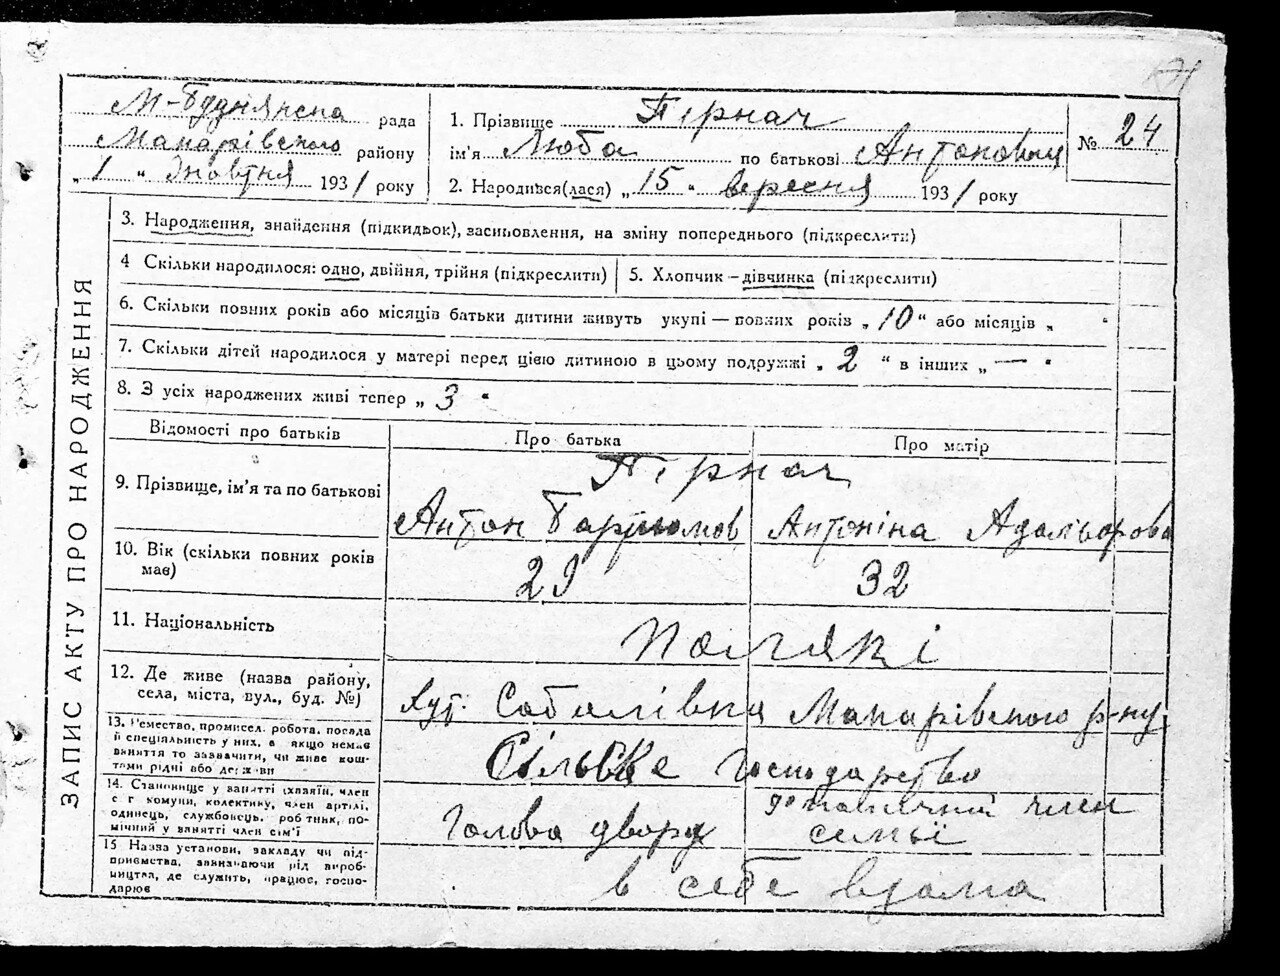 М-Буднянська рада
Макарівського району
„ 1 “ Жовтня 1931 року
1. Прізвище Пірнач
ім'я Люба по батькові Антоновна
2. Народився(лася) „ 15 “ вересня 1931 року
№ 24
ЗАПИС АКТУ ПРО НАРОДЖЕННЯ
3. Народження, знайдення (підкидьок), засиновлення, на зміну попереднього (підкреслити)
4 Скільки народилося: одно, двійня, трійня (підкреслити)
5. Хлопчик – дівчинка (підкреслити)
6. Скільки повних років або місяців батьки дитини живуть укупі — повних років „ 10 “ або місяців „ “
7. Скільки дітей народилося у матері перед цією дитиною в цьому подружжі „ 2 “ в інших „ — “
8. З усіх народжених живі тепер „ 3 “
Відомості про батьків
Про батька
Про матір
9. Прізвище, ім'я та по батькові
Пірнач
Антон
Антоніна
10. Вік (скільки повних років має)
29
32
11. Національність
Полякі
12. Де живе (назва району, села, міста, вул., буд. №)
Хут. Соболівка Макарівського р-ну
13. Ремество, промисел, робота, посада й спеціяльність у них, а якщо немає заняття то зазначити, чи живе коштами рідні або держави
Сільське господарство
14. Становище у занятті (хазяїн, член с г комуни, колективу, член артілі, одинець, службовець, робітник, помічний у занятті член сім'ї
Голова двора
член
семьі
15 Назва установи, закладу чи підприємства, зазначаючи рід виробництва, де служить, працює, господарює
в себе вдома